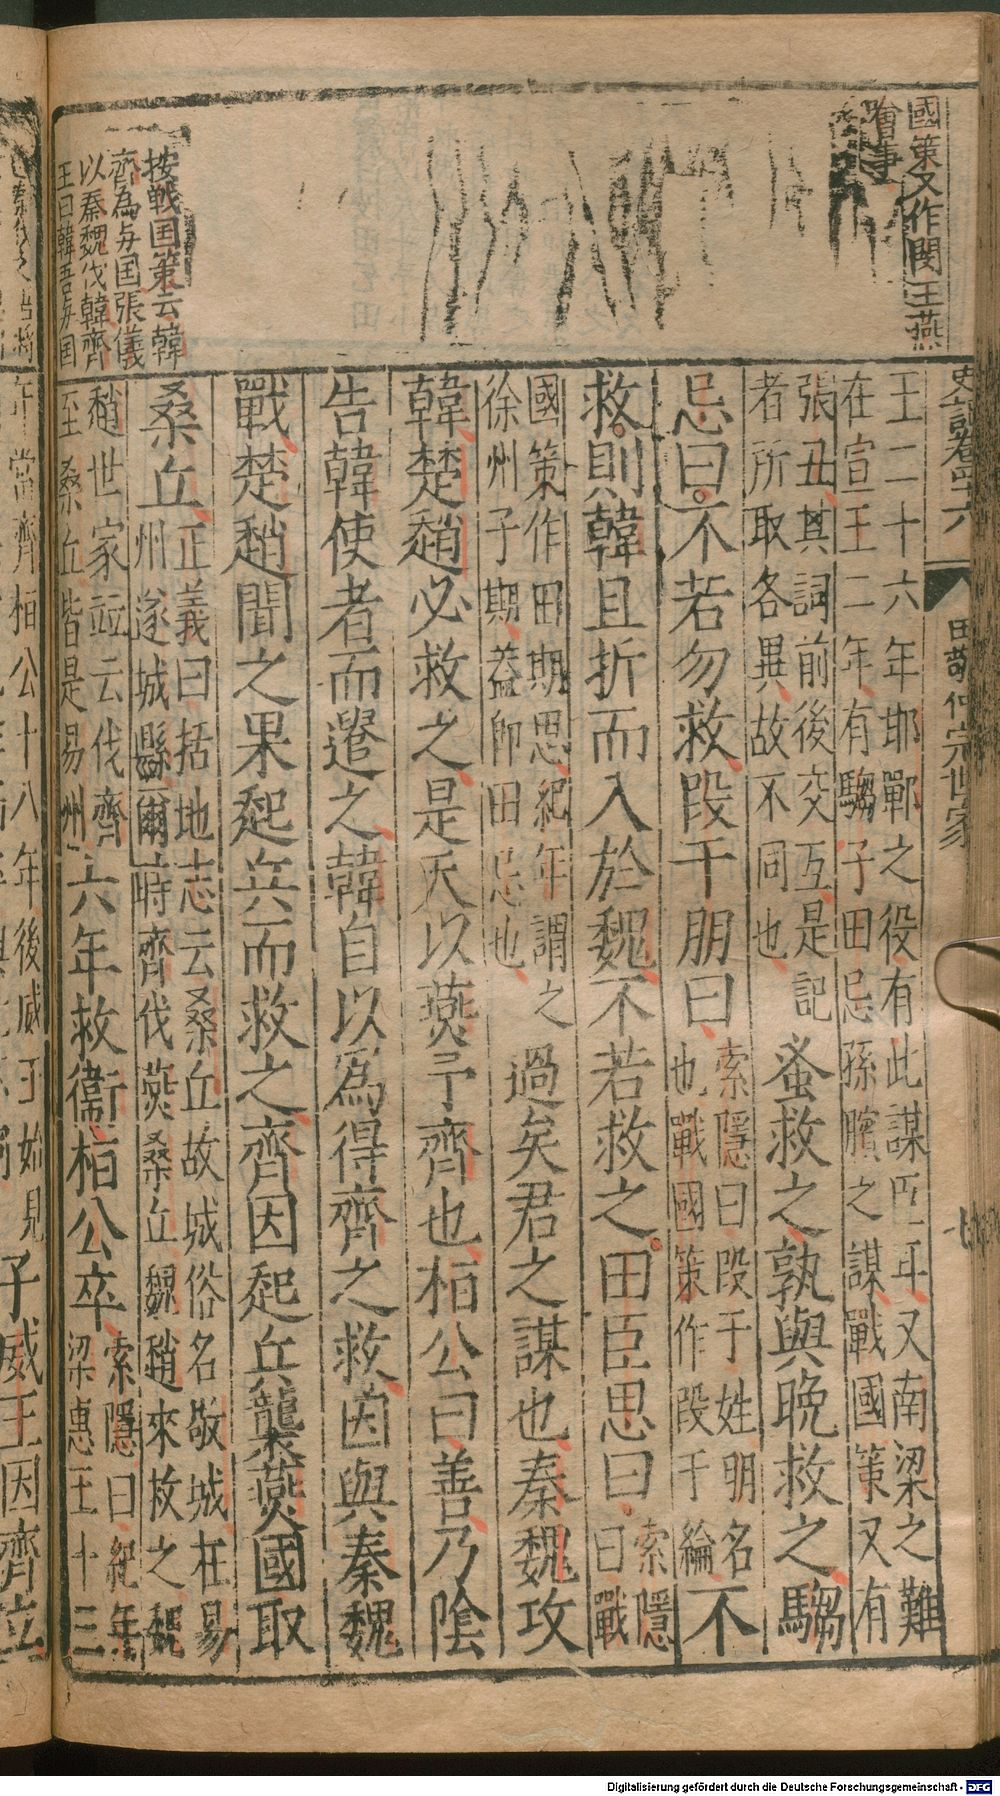 國策又作閔王燕
噲事
按戦囯策云韓
齊為与囯張儀
以秦魏伐韓齊
王曰韓吾与囯
田敬仲完世家
王二十六年邯鄲之役有此謀臣耳又南梁之難
在宣王二年有騶子田忌孫臏之謀戰國策又有
張丑其詞前後交互是記
者所取各異故不同也
蚤救之孰與晚救之騶
忌曰不若勿救段干朋曰
索隱曰段干姓朋名
也戰國策作段干綸
不
救則韓且折而入於魏不若救之田臣思曰
索隱
曰戰
國策作田期思紀年謂之
徐州子期葢即田忌也
過矣君之謀也秦魏攻
韓楚趙必救之是天以燕予齊也桓公曰善乃陰
告韓使者而遣之韓自以爲得齊之救因與秦魏
戰楚趙聞之果起兵而救之齊因起兵襲燕國取
桑丘
正義曰括地志云桑丘故城俗名敬城在易
州遂城縣爾時齊伐燕桑丘魏趙來救之魏
趙世家並云伐齊
至桑丘皆是易州
六年救衞桓公卒
索隱曰紀年
梁惠王十三
年當齊桓公十八年後威王始見
子威王因齊立
Digitalisierung gefördert durch die Deutsche Forschungsgemeinschaft - DFG